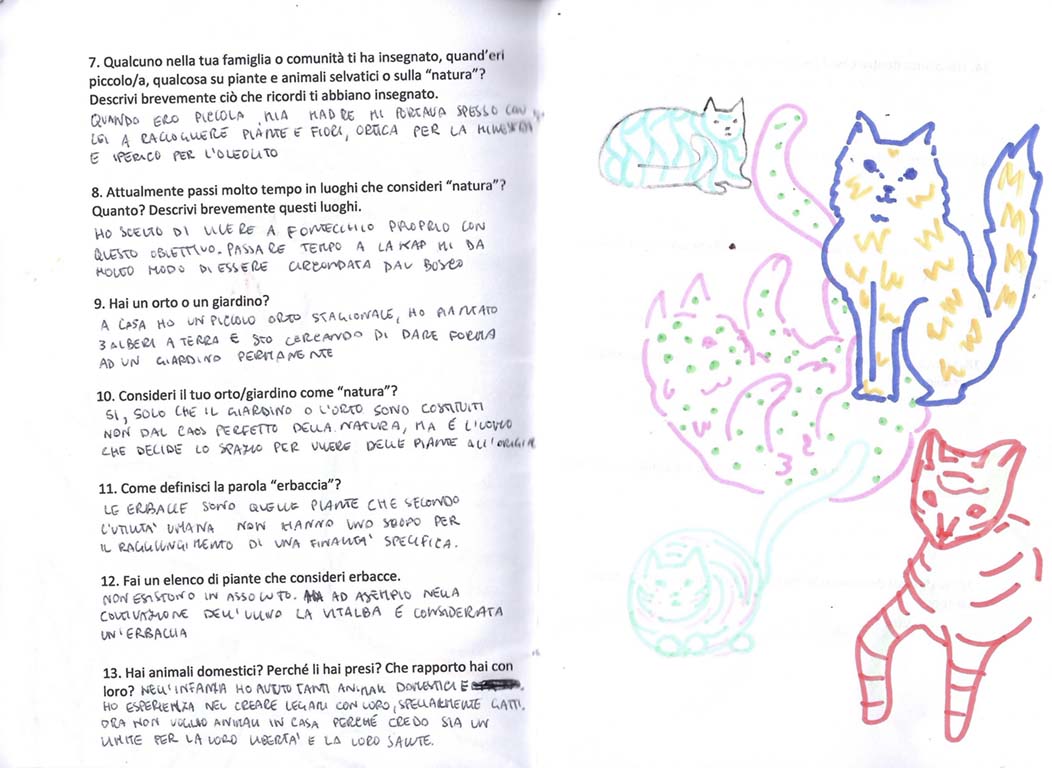 7. Qualcuno nella tua famiglia o comunità ti ha insegnato, quand'eri
piccolo/a, qualcosa su piante e animali selvatici o sulla "natura"?
Descrivi brevemente ciò che ricordi ti abbiano insegnato.
QUANDO ERO PICCOLA MIA MADRE MI PORTAVA SPESSO CON
LEI A RACCOGLIERE PIANTE E FIORI, ORTICA PER LA MINESTRA
E IPERICO PER L'OLEOLITO
8. Attualmente passi molto tempo in luoghi che consideri "natura"?
Quanto? Descrivi brevemente questi luoghi.
HO SCELTO DI VIVERE A FONTECCHIO PROPRIO CON
QUESTO OBIETTIVO. PASSARE TEMPO A LA KAP MI DA
MOLTO MODO DI ESSERE CIRCONDATA DAL BOSCO
9. Hai un orto o un giardino?
A CASA HO UN PICCOLO ORTO STAGIONALE, HO PIANTATO
3 ALBERI A TERRA E STO CERCANDO DI DARE FORMA
AD UN GIARDINO PERMANENTE
10. Consideri il tuo orto/giardino come "natura"?
SI, SOLO CHE IL GIARDINO O L'ORTO SONO COSTITUITI
NON DAL CAOS PERFETTO DELLA NATURA, MA È L'UOMO
CHE DECIDE LO SPAZIO PER VIVERE DELLE PIANTE ALL'ORIGIN
11. Come definisci la parola "erbaccia"?
LE ERBACCE SONO QUELLE PIANTE CHE SECONDO
L'UTILITA' UMANA NON HANNO UNO SCOPO PER
IL RAGGIUNGIMENTO DI UNA FINALITA' SPECIFICA.
12. Fai un elenco di piante che consideri erbacce.
NON ESISTONO IN ASSOLUTO. AD ESEMPIO NELLA
COLTIVAZIONE DELL'ULIVO LA VITALBA È CONSIDERATA
UN'ERBACCIA
13. Hai animali domestici? Perché li hai presi? Che rapporto hai con
loro? NELL'INFANZIA HO AVUTO TANTI ANIMALI DOMESTICI E
HO ESPERIENZA NEL CREARE LEGAMI CON LORO, SPECIALMENTE GATTI.
ORA NON VOGLIO ANIMALI IN CASA PERCHÉ CREDO SIA UN
LIMITE PER LA LORO LIBERTA' E LA LORO SALUTE.